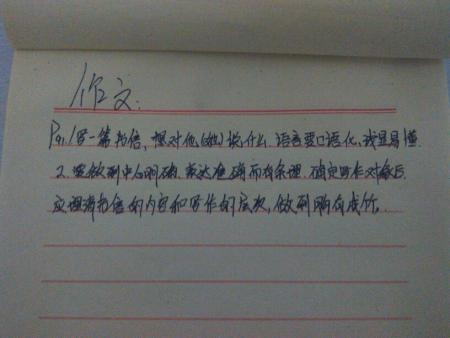 作文:
P91 1写一篇书信,想对他(她)说什么,语言要口语化,浅显易懂
2.要做到中心明确,表达准确而有条理.确定写作对象后,
应理清书信的内容和写作的层次,做到胸有成竹.